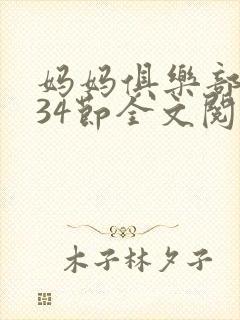 妈妈俱樂部
34節全文閱
木子林夕子